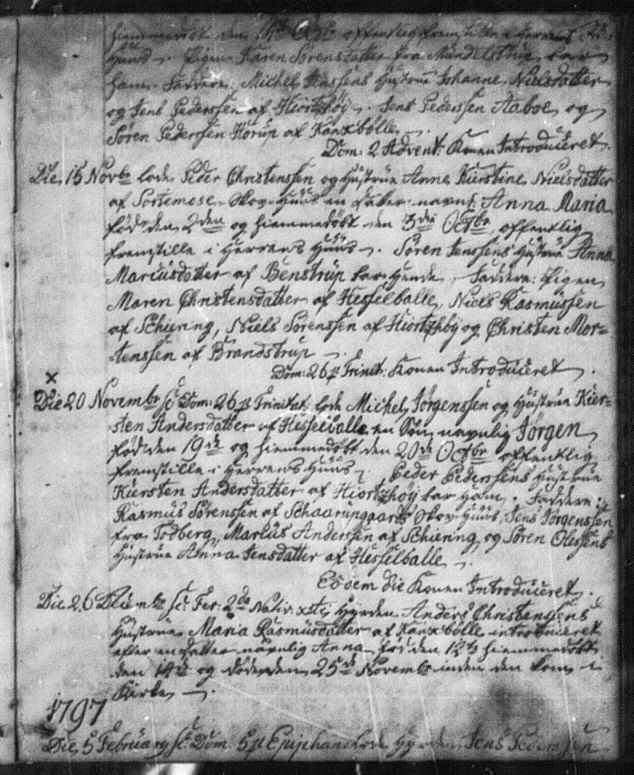 hiemmedøbt den offentlig fremstillet i Herrens
Huus. Pigen Karen Sørensdatter fra Mundelstrup bar
ham. Faddere: Michel Hustrue Johanne Nielsdatter
og Jens Pedersen af Hiortshøj. Jens Pedersen Aaboe og
Søren Pedersen Hørup af Kankbølle.
Dom: 2 Advent: Konen Introduceret.
Die 15 Novbr lode Peder Christenssen og Hustrue Anne Kierstine Nielsdatter
af Sortemose Skov-Huus en datter navnl: Anna Maria
født den 2den og hiemmedøbt den 3die Octbr offentlig
fremstille i Herrens Huus. Sören Jenssens Hustrue Anna
Mariusdatter af Benstrup bar hende. Faddere: Pigen
Maren Christensdatter af Hesselballe, Niels Rasmussen
af Schiøring, Niels Sörenssen af Hiortshøj og Christen Mor=
tenssen af Brandstrup.
Dom: 26 p Trinit: Konen Introduceret.
x
Die 20 Novembr sc Dom: 26 p Trinitat: lode Michel Jörgenssen og Hustrue Kier=
sten Andersdatter af Hesselballe en Søn navnlig Jörgen
født den 19de og hiemmedøbt den 20de Octbr offentlig
fremstille i Herrens Huus. Peder Pederssens Hustrue
Kiersten Andersdatter af Hiortshøj bar ham. Faddere:
Rasmus Sörenssen af Schaaringgaards Skov-Huus, Jens Jörgenssen
fra Todberg, Markus Anderssen af Schiøring, og Sören Olessens
Hustrue Anna Jensdatter af Hesselballe.
Eodem die Konen Introduceret.
Die 26 Decembr sc Fer: 2da Nativ: xsti Hyrden Anders Christenssens
Hustrue Maria Rasmusdatter af Kankbølle introduceret
efter en datter navnlig Anna, fød den 12te hiemmedøbt
den 14de og døde den 25de Novembr inden den kom i
Kirke.
1797
Die 5 February sc Dom: 5 p Epiphan: lode Hyrden Jens Pederssen